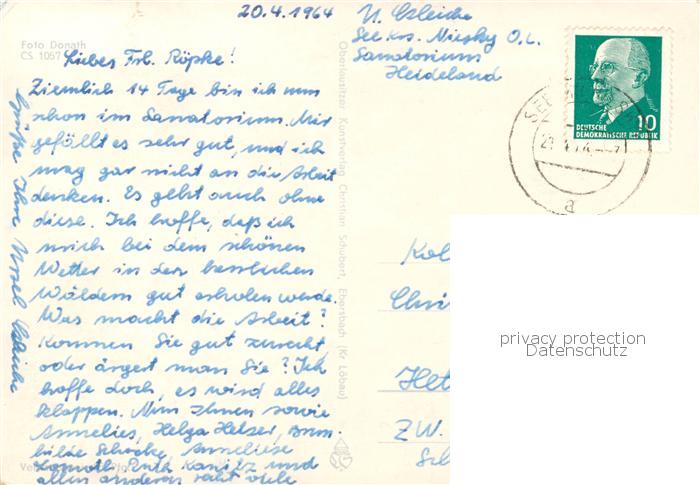 20.4.1964
Foto Donath
CS 1057
Liebes Frl. Röpke!
Ziemlich 14 Tage bin ich nun
schon im Sanatorium. Mir
gefällt es sehr gut, und ich
mag gar nicht an die Arbeit
denken. Es geht auch ohne
diese. Ich hoffe, daß ich
mich bei dem schönen
Wetter in den herrlichen
Wäldern gut erholen werde.
Was macht die Arbeit?
Kommen Sie gut zurecht
oder ärgert man Sie? Ich
hoffe doch, es wird alles
klappen. Nun Ihnen sowie
Annelies, Helga Helzer, Brun-
hilde Anneliese
Ruth Kanitz und
allen anderen recht viele
Grüße Ihre Ursel
Oberlausitzer Kunstverlag Christian Schubert, Ebersbach (Kr Löbau)
U.
See Krs. Niesky O.L.
Sanatorium
Heideland
10
DEUTSCHE
DEMOKRATISCHE REPUBLIK
SEE
a
Kol
Chri
Het
ZW.
privacy protection
Datenschutz